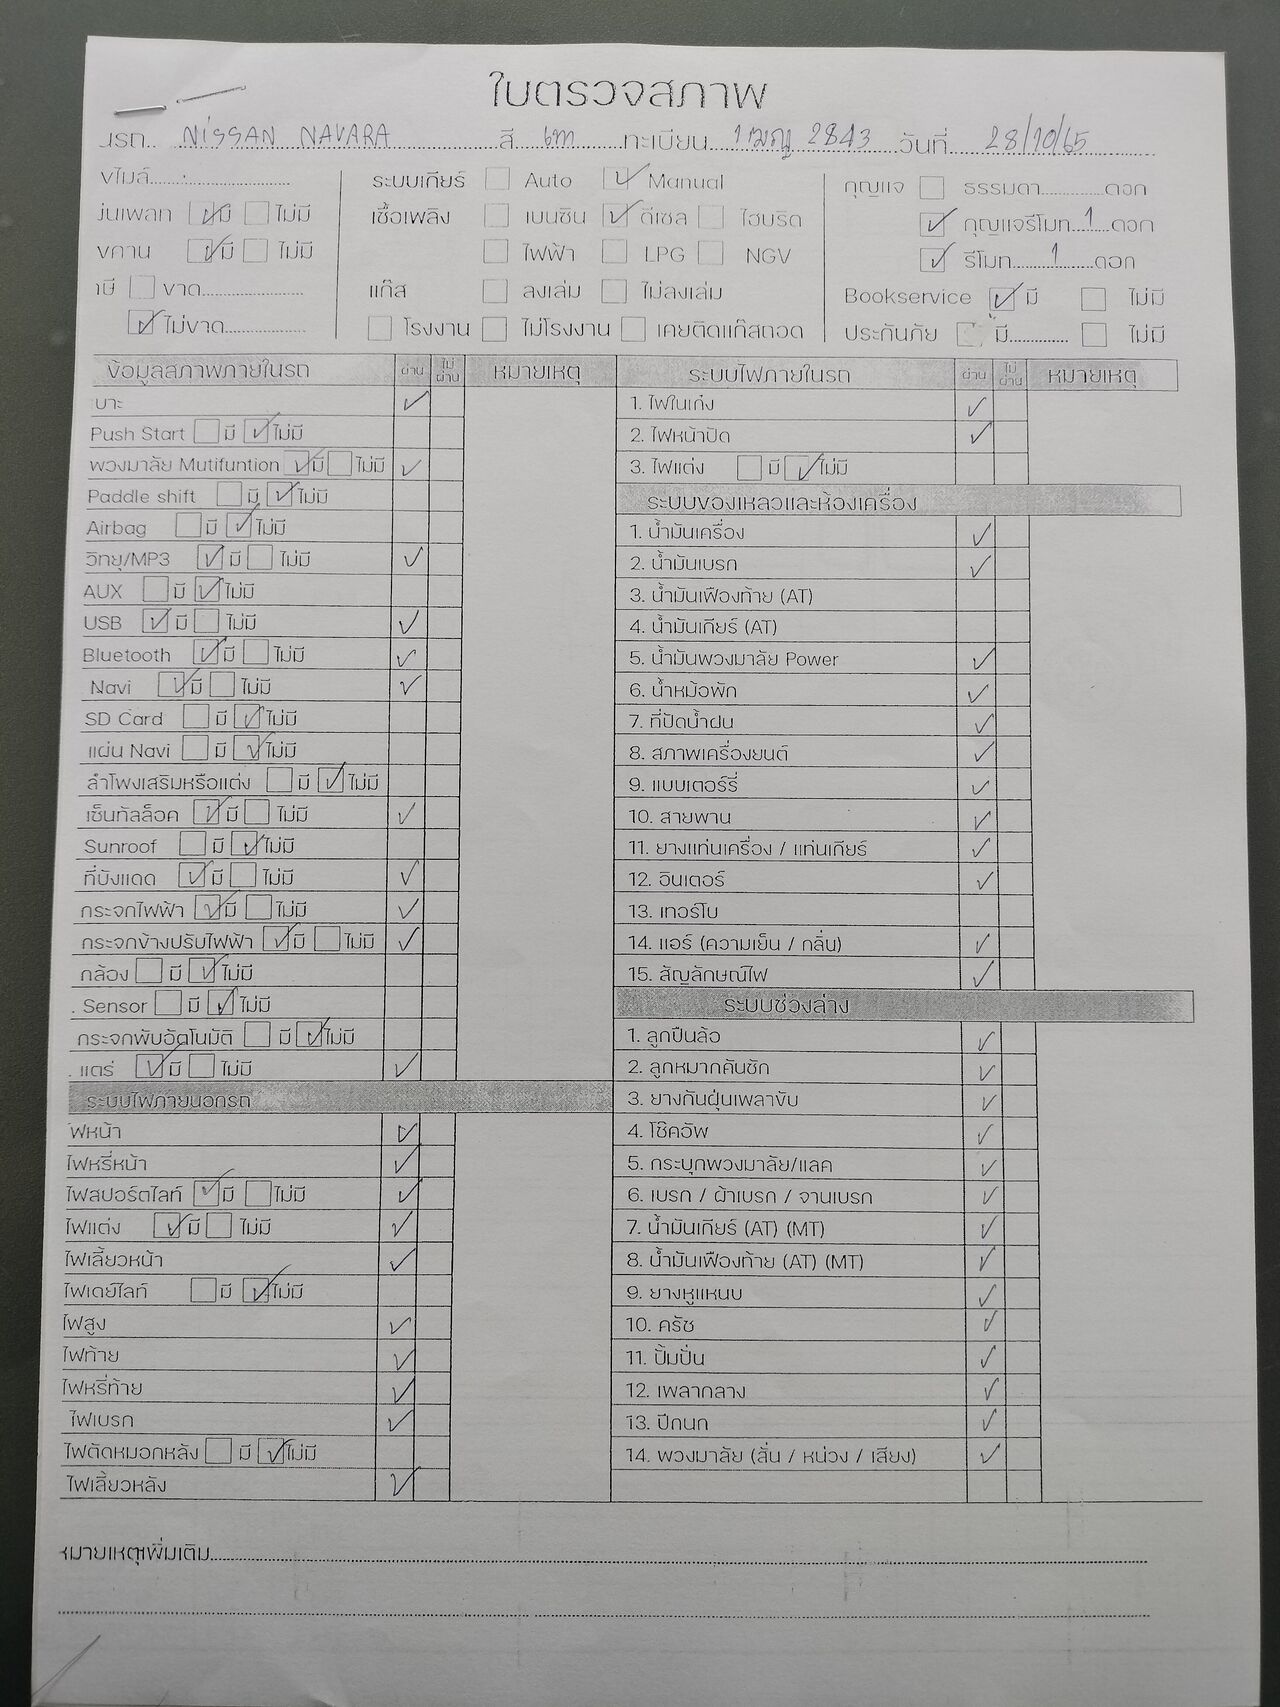 ใบตรวจสภาพ
NISSAN NAVARA สี เทา ทะเบียน 2843 วันที่ 28/10/65
ระบบเกียร์ ☐ Auto ☑ Manual
เชื้อเพลิง ☐ เบนซิน ☑ ดีเซล ☐ ไฮบริด
☐ ไฟฟ้า ☐ LPG ☐ NGV
แก๊ส ☐ ลงเล่ม ☐ ไม่ลงเล่ม
☐ โรงงาน ☐ ไม่โรงงาน ☐ เคยติดแก๊สถอด
☑ มี ☐ ไม่มี
☑ มี ☐ ไม่มี
☐ ขาด
☑ ไม่ขาด
กุญแจ ☐ ธรรมดา ดอก
☑ กุญแจรีโมท 1 ดอก
☑ รีโมท 1 ดอก
Bookservice ☑ มี ☐ ไม่มี
ประกันภัย ☐ มี ☐ ไม่มี
ข้อมูลสภาพภายในรถ ผ่าน ไม่ผ่าน หมายเหตุ
เบาะ ✓
Push Start ☐ มี ☑ ไม่มี
พวงมาลัย Mutifuntion ☑ มี ☐ ไม่มี ✓
Paddle shift ☐ มี ☑ ไม่มี
Airbag ☐ มี ☑ ไม่มี
วิทยุ/MP3 ☑ มี ☐ ไม่มี ✓
AUX ☐ มี ☑ ไม่มี
USB ☑ มี ☐ ไม่มี ✓
Bluetooth ☑ มี ☐ ไม่มี ✓
Navi ☑ มี ☐ ไม่มี ✓
SD Card ☐ มี ☑ ไม่มี
แผ่น Navi ☐ มี ☑ ไม่มี
ลำโพงเสริมหรือแต่ง ☐ มี ☑ ไม่มี
เซ็นทัลล็อค ☑ มี ☐ ไม่มี ✓
Sunroof ☐ มี ☑ ไม่มี
ที่บังแดด ☑ มี ☐ ไม่มี ✓
กระจกไฟฟ้า ☑ มี ☐ ไม่มี ✓
กระจกข้างปรับไฟฟ้า ☑ มี ☐ ไม่มี ✓
กล้อง ☐ มี ☑ ไม่มี
. Sensor ☐ มี ☑ ไม่มี
กระจกพับอัตโนมัติ ☐ มี ☑ ไม่มี
. แตร ☑ มี ☐ ไม่มี ✓
ระบบไฟภายนอกรถ
ฟหน้า ✓
ไฟหรี่หน้า ✓
ไฟสปอร์ตไลท์ ☑ มี ☐ ไม่มี ✓
ไฟแต่ง ☑ มี ☐ ไม่มี ✓
ไฟเลี้ยวหน้า ✓
ไฟเดย์ไลท์ ☐ มี ☑ ไม่มี
ไฟสูง ✓
ไฟท้าย ✓
ไฟหรี่ท้าย ✓
ไฟเบรก ✓
ไฟตัดหมอกหลัง ☐ มี ☑ ไม่มี
ไฟเลี้ยวหลัง ✓
ระบบไฟภายในรถ ผ่าน ไม่ผ่าน หมายเหตุ
1. ไฟในเก๋ง ✓
2. ไฟหน้าปัด ✓
3. ไฟแต่ง ☐ มี ☑ ไม่มี
ระบบของเหลวและห้องเครื่อง
1. น้ำมันเครื่อง ✓
2. น้ำมันเบรก ✓
3. น้ำมันเฟืองท้าย (AT)
4. น้ำมันเกียร์ (AT)
5. น้ำมันพวงมาลัย Power ✓
6. น้ำหม้อพัก ✓
7. ที่ปัดน้ำฝน ✓
8. สภาพเครื่องยนต์ ✓
9. แบบเตอร์รี่ ✓
10. สายพาน ✓
11. ยางแท่นเครื่อง / แท่นเกียร์ ✓
12. อินเตอร์ ✓
13. เทอร์โบ
14. แอร์ (ความเย็น / กลิ่น) ✓
15. สัญลักษณ์ไฟ ✓
ระบบช่วงล่าง
1. ลูกปืนล้อ ✓
2. ลูกหมากคันชัก ✓
3. ยางกันฝุ่นเพลาขับ ✓
4. โช๊คอัพ ✓
5. กระบุกพวงมาลัย/แลค ✓
6. เบรก / ผ้าเบรก / จานเบรก ✓
7. น้ำมันเกียร์ (AT) (MT) ✓
8. น้ำมันเฟืองท้าย (AT) (MT) ✓
9. ยางหูแหนบ ✓
10. ครัช ✓
11. ปั้มปั่น ✓
12. เพลากลาง ✓
13. ปีกนก ✓
14. พวงมาลัย (ลั่น / หน่วง / เสียง) ✓
หมายเหตุเพิ่มเติม